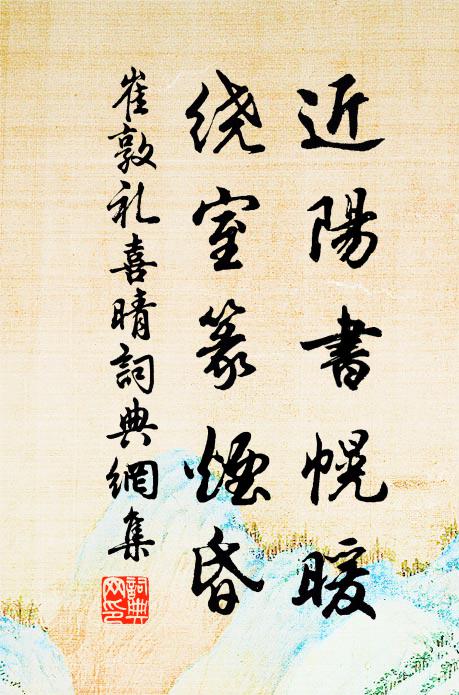 近陽書幌暖
绕室篆煙昏
崔敦礼喜晴詞典網集